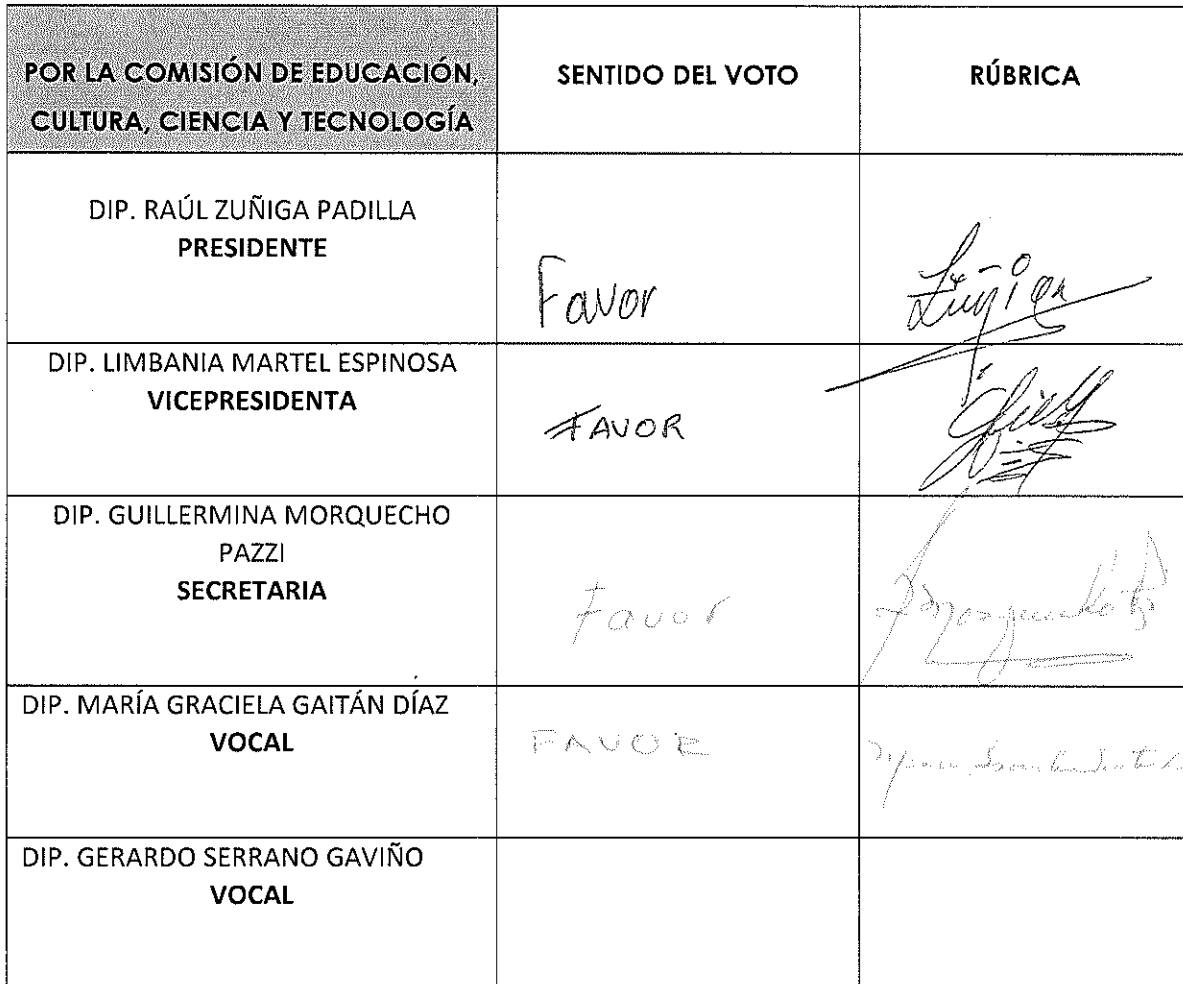 POR LA COMISIÓN DE EDUCACIÓN,
CULTURA, CIENCIA Y TECNOLOGÍA
SENTIDO DEL VOTO
RÚBRICA
DIP. RAÚL ZUÑIGA PADILLA
PRESIDENTE
Favor
Zuñiga
DIP. LIMBANIA MARTEL ESPINOSA
VICEPRESIDENTA
FAVOR
DIP. GUILLERMINA MORQUECHO
PAZZI
SECRETARIA
Favor
DIP. MARÍA GRACIELA GAITÁN DÍAZ
VOCAL
FAVOR
DIP. GERARDO SERRANO GAVIÑO
VOCAL